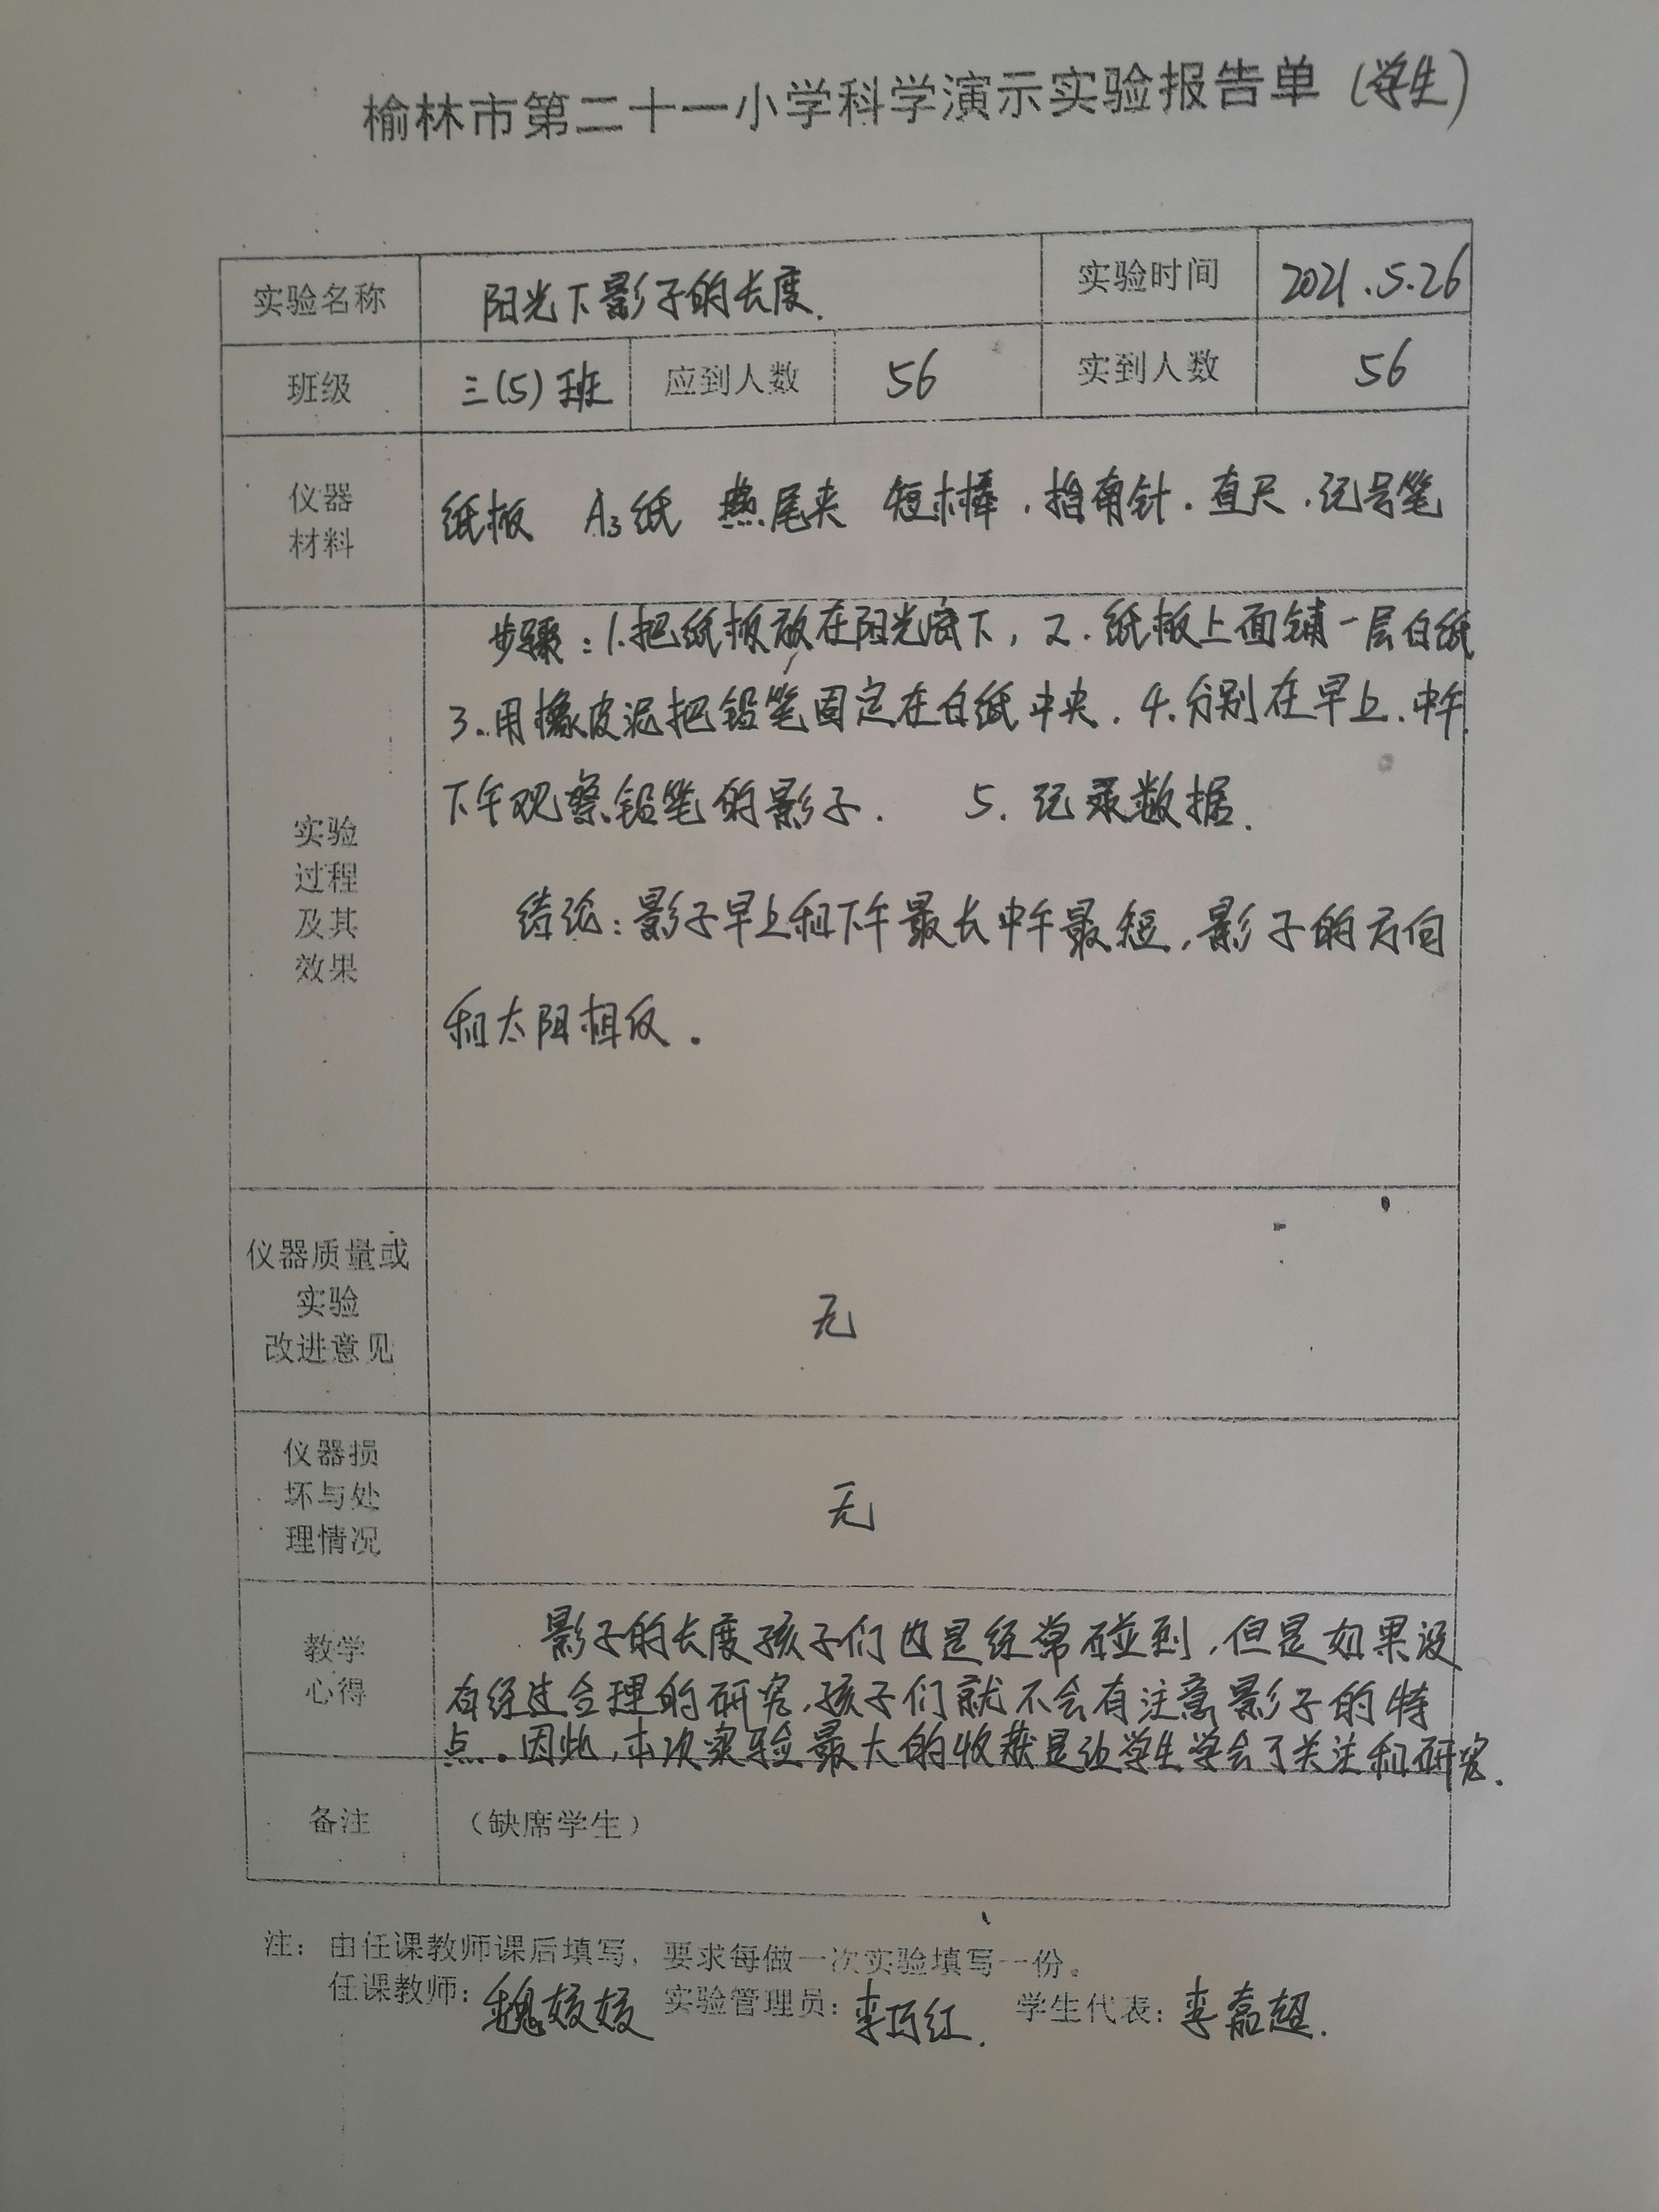 榆林市第二十一小学科学演示实验报告单(学生)
实验名称 阳光下影子的长度. 实验时间 2021.5.26
班级 三(5)班 应到人数 56 实到人数 56
仪器
材料
纸板 A3纸 燕尾夹 短木棒.指南针.直尺.记号笔
实验
过程
及其
效果
步骤:1.把纸板放在阳光底下,2.纸板上面铺一层白纸
3.用橡皮泥把铅笔固定在白纸中央.4.分别在早上.中午.
下午观察铅笔的影子. 5.记录数据.
结论:影子早上和下午最长中午最短,影子的方向
和太阳相反.
仪器质量或
实验
改进意见
无
仪器损
坏与处
理情况
无
教学
心得
影子的长度孩子们也是经常碰到,但是如果没
有经过合理的研究,孩子们就不会有注意影子的特
点。因此,本次实验最大的收获是让学生学会了关注和研究.
备注 (缺席学生)
注:由任课教师课后填写,要求每做一次实验填写一份。
任课教师:魏姣姣 实验管理员:李巧红. 学生代表:李嘉超.